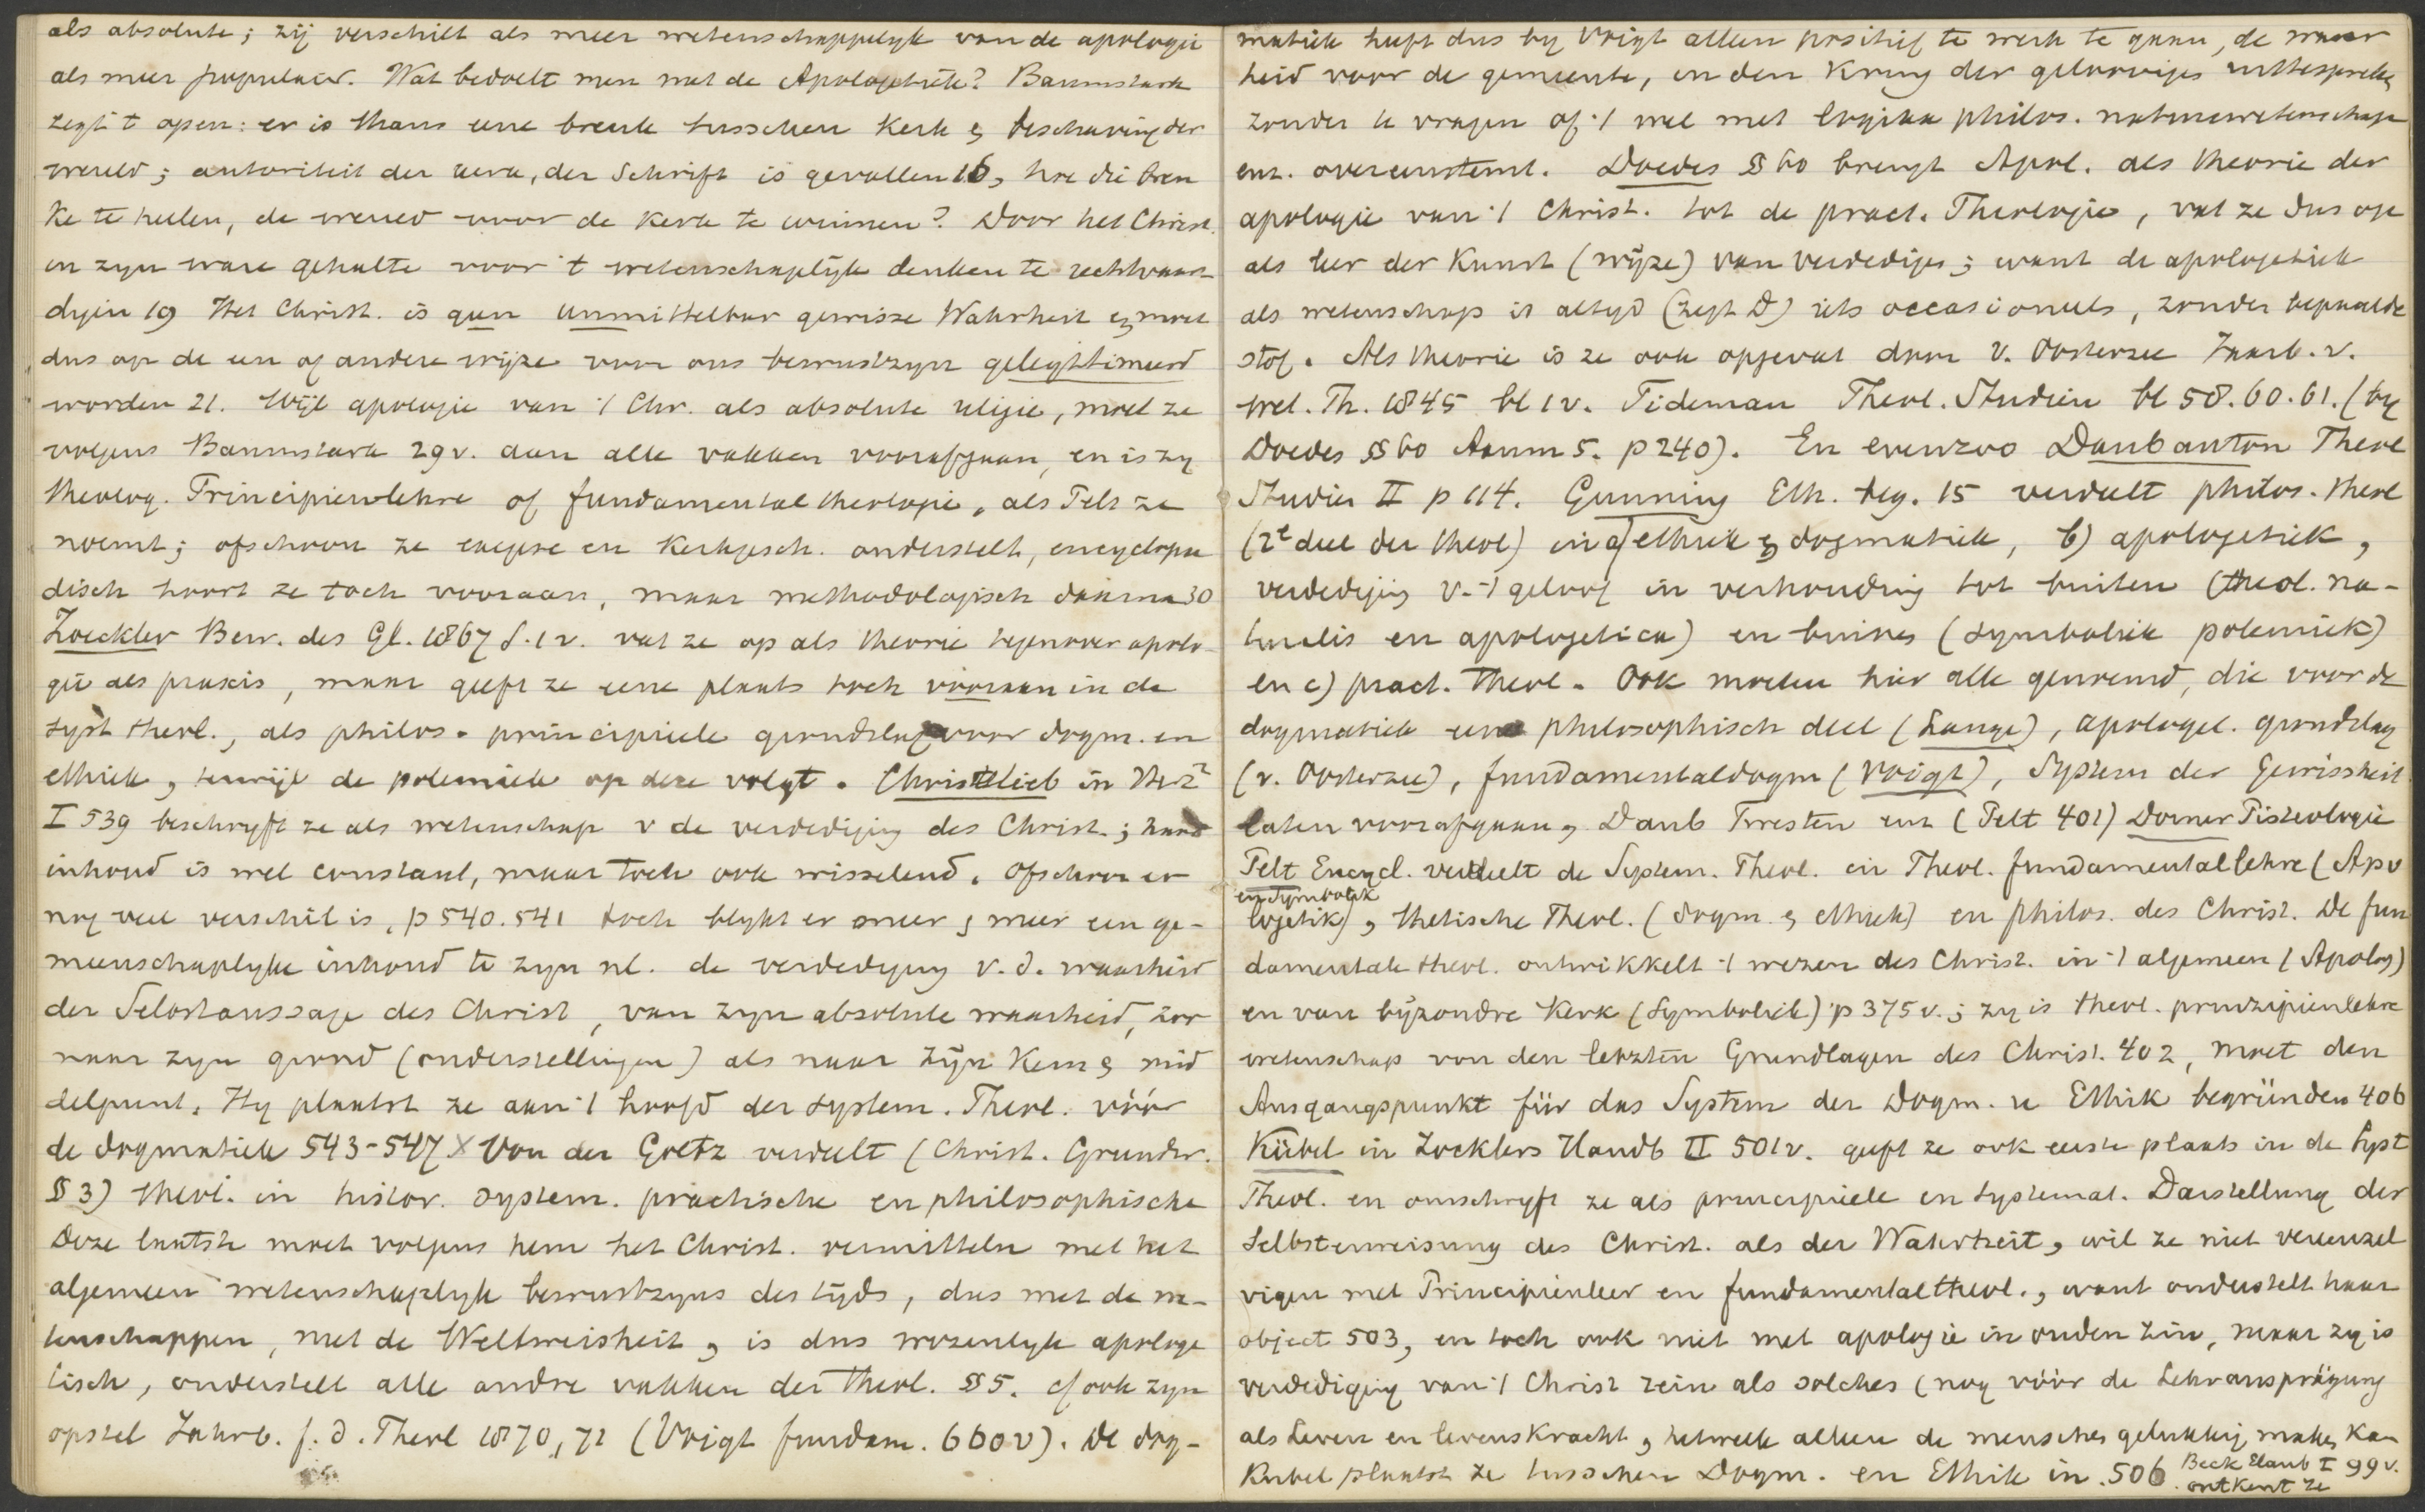 als absolute; zij verschilt als meer wetenschappelyk van de apologie
als meer populair. Wat bedoelt men met de Apologetiek? Baumstark
zegt 't open: er is thans eene breuk tusschen Kerk & beschaving der
wereld; autoriteit der kerk, der Schrift is gevallen 16, hoe die breu
ke te heelen, de wereld voor de kerk te winnen? Door het Christ.
in zyn ware gehalte voor 't wetenschaplyk denken te rechtvaar
digen 19 Het Christ. is geen unmittelbar gewisze Wahrheit & moet
dus op de een of andere wijze voor ons bewustzyn gelegitimeerd
worden 21. Wijl apologie van 't Chr. als absolute religie, moet ze
volgens Baumstark 29 v. aan alle vakken voorafgaan, en is zy
theolog. Principienlehre of fundamentaltheologie, als Pelt ze
noemt; ofschoon ze exegese en Kerkgesch. onderstelt, encyclopae
disch hoort ze toch vooraan, maar methodologisch daarna 30
Zoeckler Bew. des Gl. 1867 S. 1 v. vat ze op als theorie tegenover apolo-
gie als praxis, maar geeft ze eene plaats toch vooraan in de
syst theol., als philos. principiele grondslag voor dogm. en
ethiek, terwijl de polemiek op deze volgt. Christlieb in Herz²
I 539 beschryft ze als wetenschap v de verdediging des Christ.; haar
inhoud is wel constant, maar toch ook wisselend. Ofschoon er
nog veel verschil is, p 540. 541 toch blykt er meer & meer een ge-
meenschaplyke inhoud te zyn nl. de verdediging v. d. waarheid
der Selbstaussage des Christ, van zyn absolute waarheid, zoo
naar zyn grond (onderstellingen) als naar zijn Kern & mid
delpunt. Hy plaatst ze aan 't hoofd der system. Theol. vóór
de dogmatiek 543-547 X Von der Goltz verdeelt (Christ. Grundw.
§ 3) theol. in histor. system. practische en philosophische
Deze laatste moet volgens hem het Christ. vermitteln met het
algemeen wetenschaplyk bewustzyns des tijds, dus met de we-
tenschappen, met de Weltweisheit, is dus wezenlyk apologe
tisch, onderstelt alle andre vakken der theol. § 5. cf ook zyn
opstel Jahrb. f. d. Theol 1870, 72 (Voigt fundam. 660 v). De dog-
matiek heeft dus by Voigt alleen positief te werk te gaan, de waar
heid voor de gemeente, in den Kring der geloovigen uittespreken
zonder te vragen of 't wel met logika philos. natuurwetenschap
enz. overeenstemt. Doedes § 60 brengt Apol. als theorie der
apologie van 't Christ. tot de pract. Theologie, vat ze dus op
als leer der Kunst (wijze) van verdedigen; want de apologetiek
als wetenschap is altyd (zegt D) iets occasioneels, zonder bepaalde
stof. Als theorie is ze ook opgevat door v. Oosterzee Jaarb. v.
wet. Th. 1845 bl 1 v. Tideman Theol. Studien bl 58. 60. 61. (by
Doedes § 60 Aanm 5. p 240). En evenzoo Daubanton Theol
Studien II p 114. Gunning Eth. beg. 15 verdeelt philos. theol
(2e deel der theol) in a) ethiek & dogmatiek, b) apologetiek,
verdediging v. 't geloof in verhouding tot buiten (theol. na-
turalis en apologetica) en binnen (symboliek polemiek)
en c) pract. theol. Ook moeten hier alle genoemd, die voor de
dogmatiek een philosophisch deel (Lange), apologet. grondslag
(v. Oosterzee), fundamentaldogm (Voigt), System der Gewissheit
laten voorafgaan, Daub Twesten enz (Pelt 401) Dorner Pisteologie
Pelt Encycl. verdeelt de System. Theol. in Theol. fundamentallehre (Apo
en Symboliek
logetik), thetische Theol. (dogm. & ethiek) en philos. des Christ. De fun
damentale theol. ontwikkelt 't wezen des Christ. in 't algemeen (Apolog)
en van byzondre Kerk (Symboliek) p 375 v.; zy is theol. prinzipienlehre
wetenschap von den letzten Grundlagen des Christ. 402, moet den
Ausgangspunkt für das System der Dogm. u Ethik begründen 406
Kübel in Zocklers Handb II 501 v. geeft ze ook eerste plaats in de Syst
Theol. en omschryft ze als principiele en systemat. Darstellung der
Selbsterweisung des Christ. als der Wahrheit, wil ze niet vereenzel
vigen met Principienleer en fundamentaltheol., want onderstelt haar
object 503, en toch ook niet met apologie in ouden zin, maar zy is
verdediging van 't Christ rein als solches (nog vóór de Lehrausprägung
als Leven en levenskracht, hetwelk alleen de menschen gelukkig maken kan
Kubel plaatst ze tusschen Dogm. en Ethik in. 506 Beck Elaub I 99 v.
ontkent ze